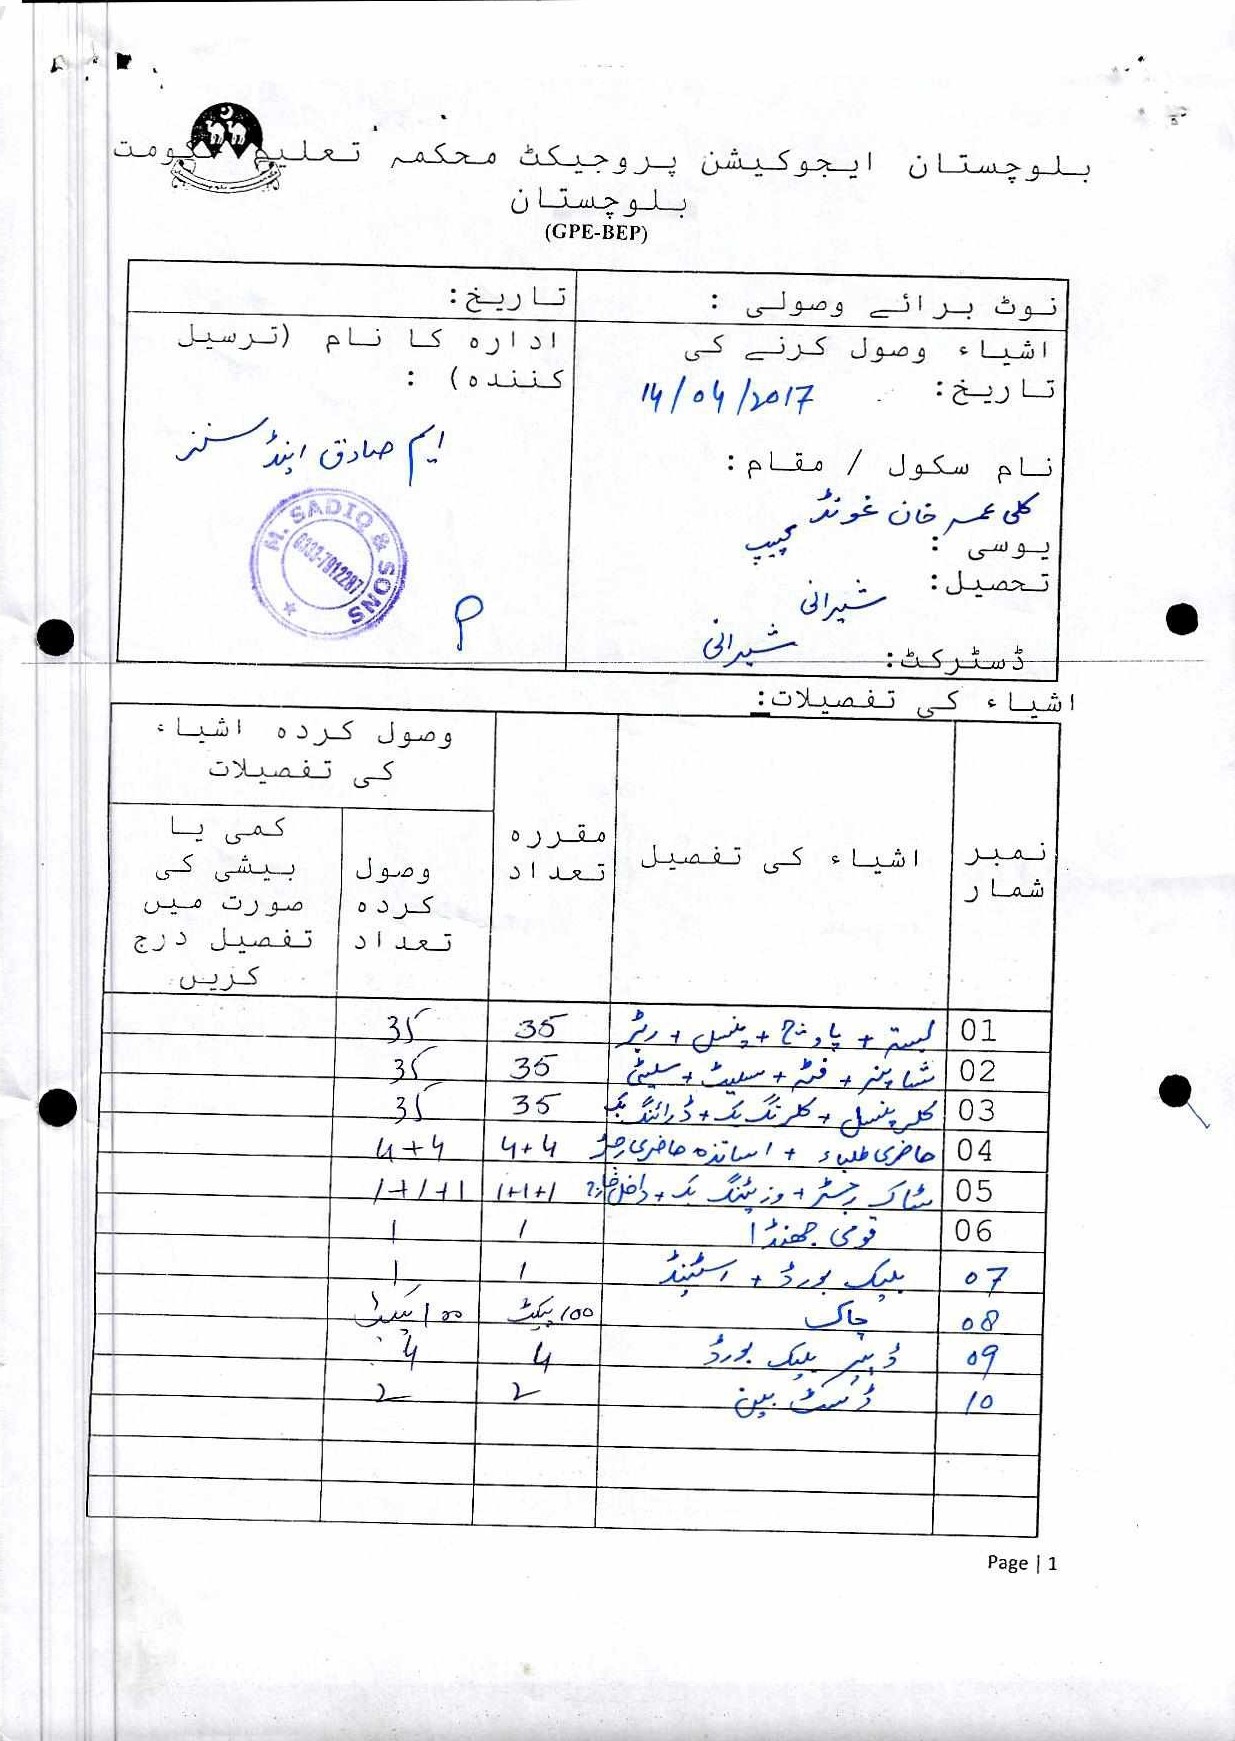 بلوچستان ایجوکیشن پروجیکٹ محکمہ تعلیم حکومت
بلوچستان
(GPE-BEP)
نوٹ برائے وصولی :
تاریخ:
اشیاء وصول کرنے کی
تاریخ: 14/04/2017
نام سکول / مقام:
کلی عمر خان غونڈ
یوسی :
تحصیل: شیرانی
ڈسٹرکٹ: شیرانی
ادارہ کا نام (ترسیل
کنندہ) :
ایم صادق اینڈ سنز
M. SADIQ & SONS
0332-7912287
اشیاء کی تفصیلات:
نمبر شمار
اشیاء کی تفصیل
مقررہ تعداد
وصول کردہ اشیاء کی تفصیلات
وصول کردہ تعداد
کمی یا بیشی کی صورت میں تفصیل درج کریں
01 بستہ + پاؤچ + پنسل + ربڑ 35 35
02 شاپنر + فٹہ + سلیٹ + سلیٹی 35 35
03 کلر پنسل + کلرنگ بک + ڈرائنگ بک 35 35
04 حاضری طلباء + اساتذہ حاضری رجسٹر 4+4 4+4
05 سٹاک رجسٹر + وزیٹنگ بک + داخل خارج 1+1+1 1+1+1
06 قومی جھنڈا 1 1
07 بلیک بورڈ + اسٹینڈ 1 1
08 چاک 100 پیکٹ 100 پیکٹ
09 ڈسٹر بلیک بورڈ 4 4
10 ڈسٹ بین 2 2
Page | 1